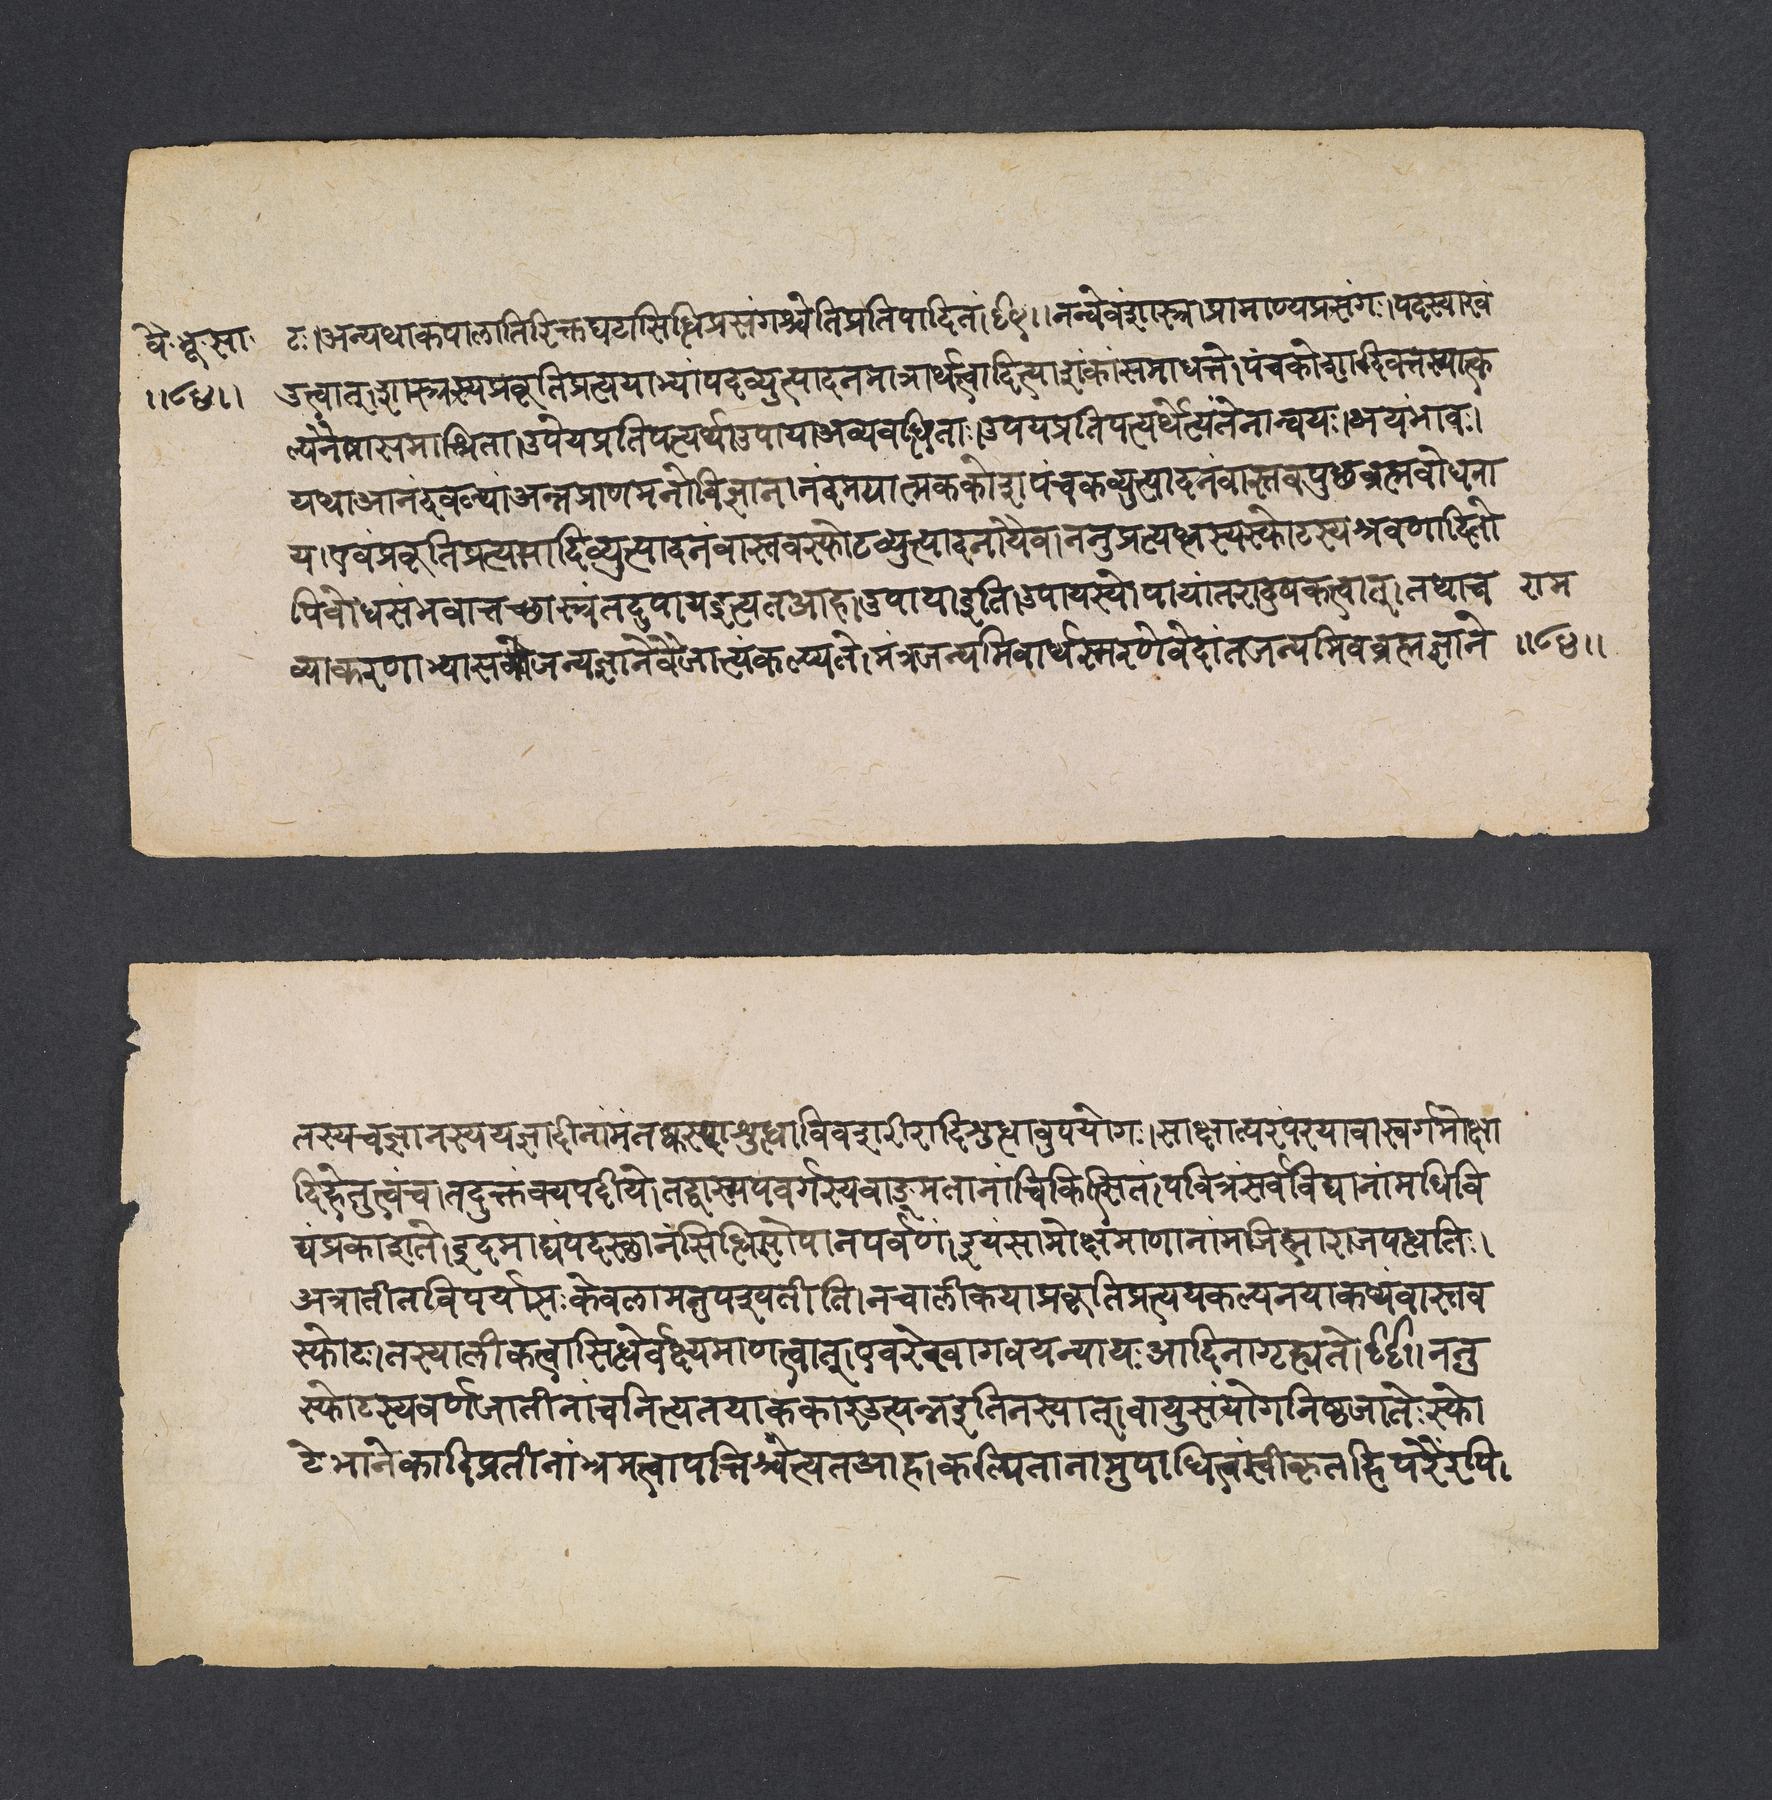 वै॰ भू॰ सा॰ टः।अन्यथाकपालातिरिक्तघटासिद्धिप्रसंगश्चेतिप्रतिपादितं।६५।।नन्वेवंशास्त्रा प्रामाण्यप्रसंगः।पदस्याखं
।।८४।। डत्वात्।शास्त्रस्यप्रकृतिप्रत्ययाभ्यांपदव्युत्पादनमात्रार्थत्वादित्याशंकांसमाधत्ते।पंचकोशादिवत्तस्मात्क
ल्पनैषासमाश्रिता।उपेयप्रतिपत्यर्थाउपायाअव्यवस्थिताः।उपेयप्रतिपत्यर्थेत्यंतेनान्वयः।अयंभावः।
यथाआनंदवल्यांअन्नप्राणमनोविज्ञानानंदमयात्मककोशपंचकव्युत्पादनंवास्तवपुछब्रह्मबोधना
य।एवंप्रकृतिप्रत्ययादिव्युत्पादनंवास्तवस्फोटव्युत्पादनायैव।ननुप्रत्यक्षस्यस्फोटस्यश्रवणादितो
पिबोधसंभवान्नतच्छास्त्रंतदुपायइत्यतआह।उपायाइति।उपायस्योपायांतरादुषकत्वात्।तथाच राम
व्याकरणाभ्यासजन्यज्ञानेवैजात्यंकल्प्यते।मंत्रजन्यमिवार्थस्मरणेवेदांतजन्यमिवब्रह्मज्ञाने ।।८४।।
तस्यचज्ञानस्ययज्ञादीनांमंतःकरणशुद्धाविवशरीरादिशुद्धावुपयोगः।साक्षात्परंपरयावास्वर्गमोक्षा
दिहेतुत्वंच।तदुक्तंवाक्यपदीये।तद्वारमपवर्गस्यवाङ्मलानांचिकित्सितं।पवित्रंसर्वविद्यानांमधिवि
द्यंप्रकाशते।इदमाद्यंपदस्थानंसिद्धिसोपानपर्वणां।इयंसामोक्षमाणानांमजिह्माराजपद्धतिः।
अत्रातीतविपर्यासःकेवलामनुपश्यतीति।नचालीकयाप्रकृतिप्रत्ययकल्पनयाकथंवास्तव
स्फोटः।तस्यालीकत्वासिद्धेर्वक्ष्यमाणत्वात्।एवंरेखागवयन्यायःआदिनागृह्यते।६६।ननु
स्फोटस्यवर्णजातीनांचनित्यतयाककारउत्पन्नइतिनस्यात्।वायुसंयोगनिष्ठजातेःस्फो
टेभानेकादिप्रतीनांभ्रमत्वापत्तिश्चेत्यतआह।कल्पितानामुपाधित्वंस्वीकृतंहिपरैरपि।